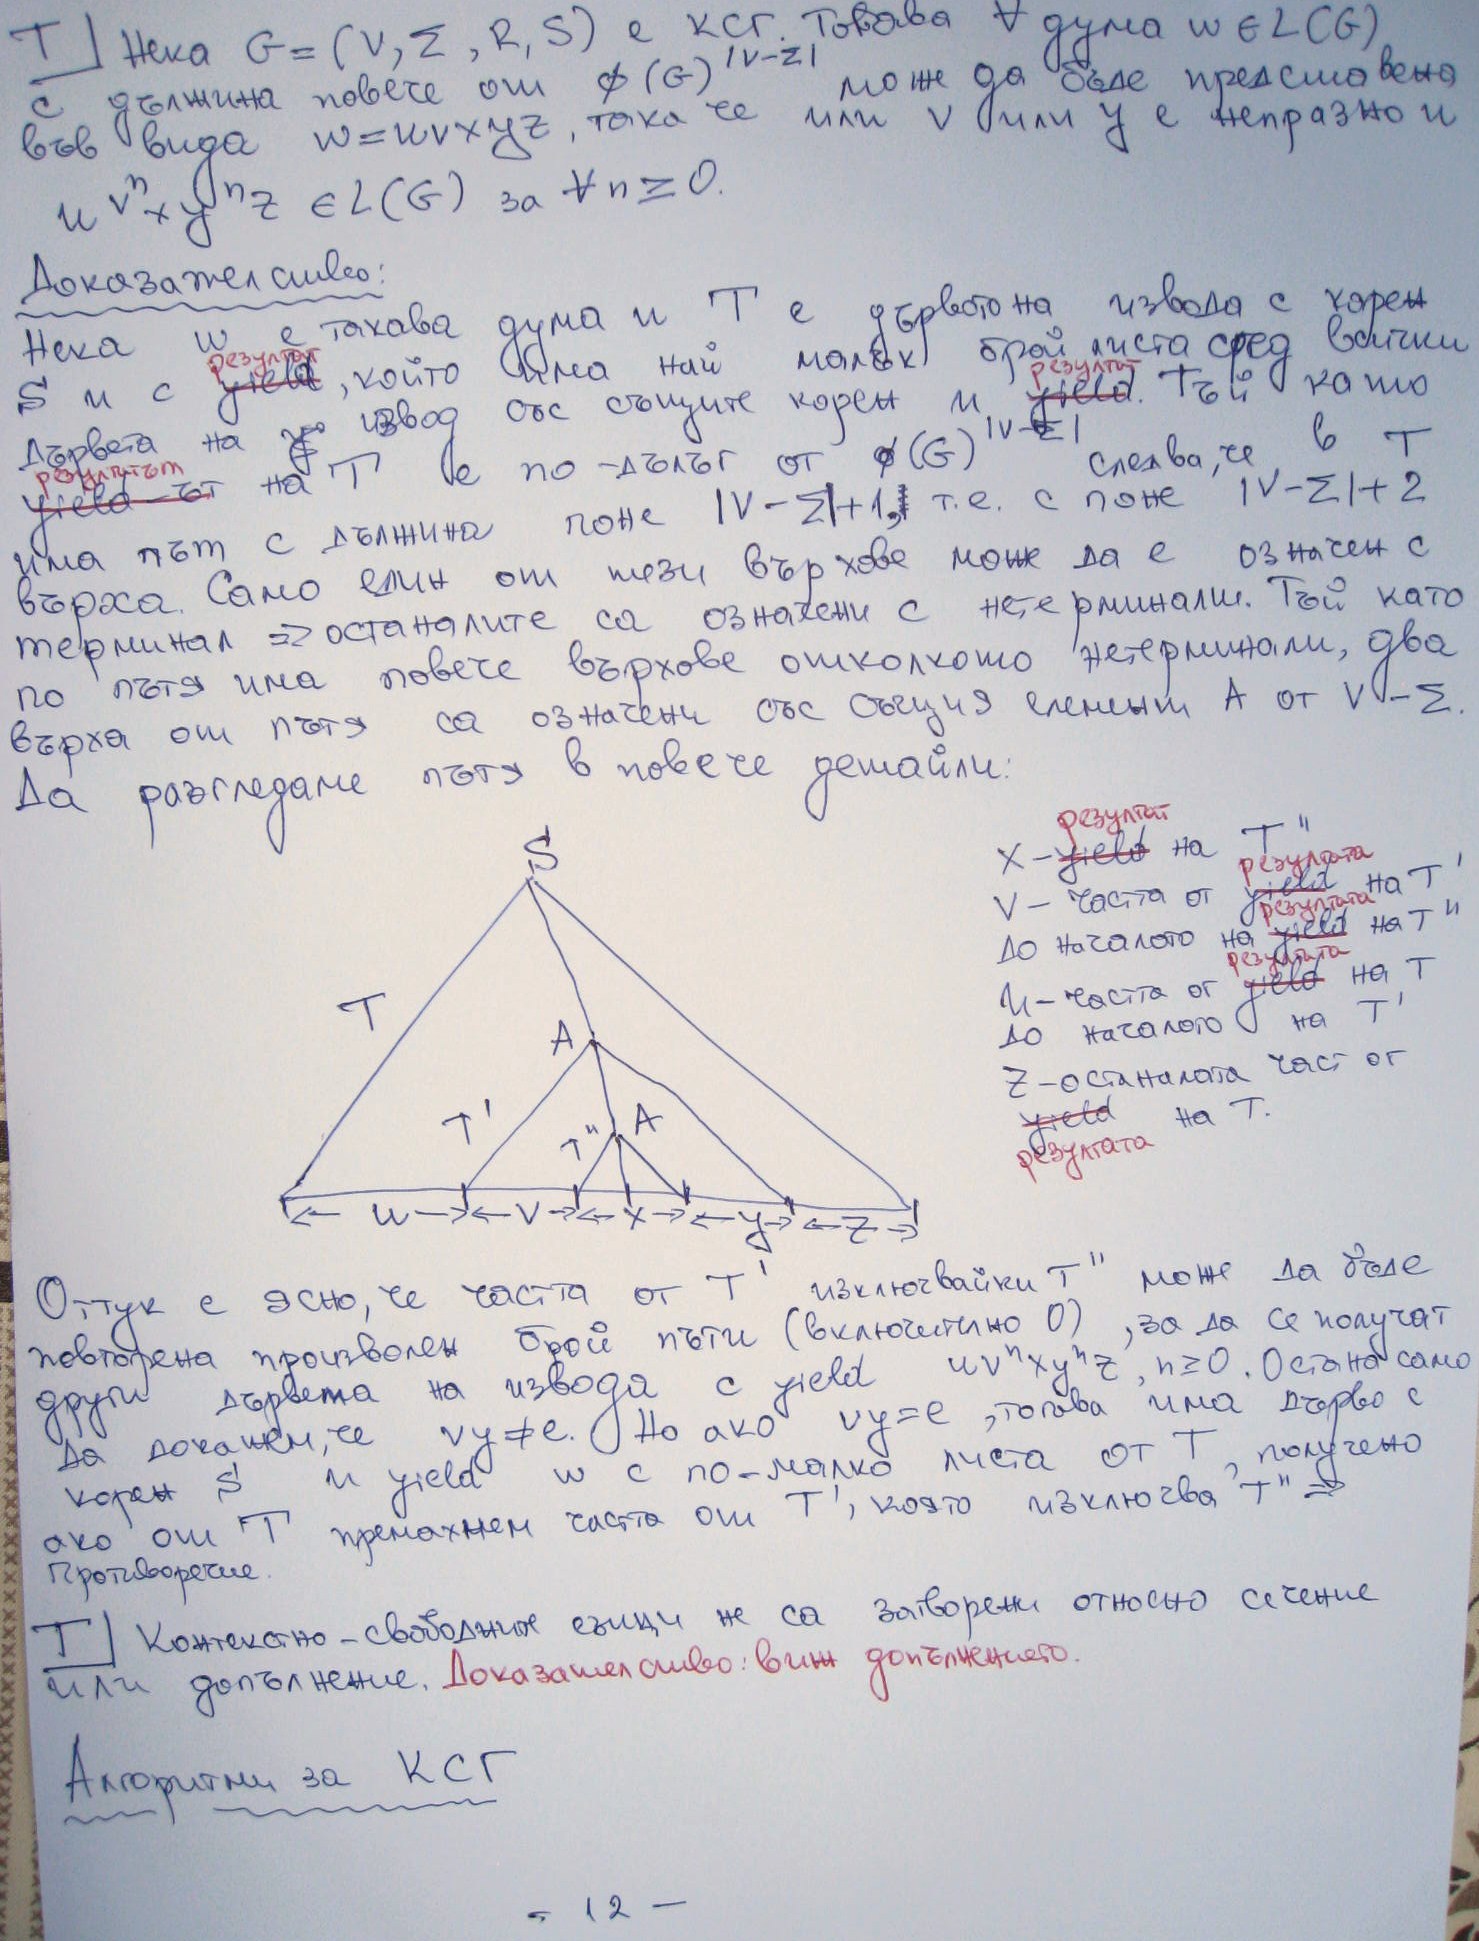 T| Нека G=(V,Σ,R,S) е КСГ. Товава ∀ дума w∈L(G)
с дължина повече от φ(G)^|V-Σ| може да бъде представена
във вида w=uvxyz, така че или v или y е непразно и
uvⁿxyⁿz ∈L(G) за ∀n≥0.
Доказателство:
Нека w е такава дума и T е дървото на извода с корен
S и с резултат yield, който има най малък брой листа сред всички
дървета на извод със същите корен и резултат yield. Тъй като
резултатът yield-ът на T е по-дълъг от φ(G)^|V-Σ| следва, че в T
има път с дължина поне |V-Σ|+1, т.е. с поне |V-Σ|+2
върха. Само един от тези върхове може да е означен с
терминал => останалите са означени с нетерминали. Тъй като
по пътя има повече върхове отколкото нетерминали, два
върха от пътя са означени със същия елемент A от V-Σ.
Да разгледаме пътя в повече детайли:
S
T
A
T'
T"
A
u v x y z
резултат
x - yield на T"
резултата
v - частта от yield на T'
резултата
до началото на yield на T"
резултата
u - частта от yield на T
до началото на T'
z - останалата част от
yield на T.
резултата
Оттук е ясно, че частта от T' изключвайки T" може да бъде
повторена произволен брой пъти (включително 0), за да се получат
други дървета на извода с yield uvⁿxyⁿz, n≥0. Остана само
да докажем, че vy≠e. Но ако vy=e, тогава има дърво с
корен S и yield w с по-малко листа от T, получено
ако от T премахнем частта от T', която изключва T" =>
Противоречие.
T| Контекстно-свободните езици не са затворени относно сечение
или допълнение. Доказателство: виж допълнението.
Алгоритми за КСГ
- 12 -